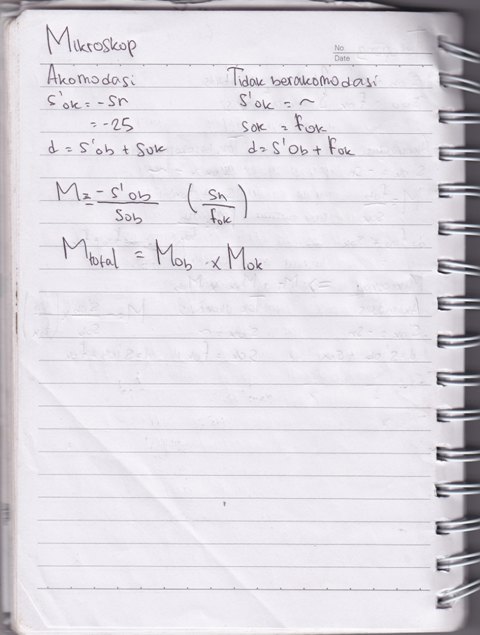 Mikroskop
No.
Date
Akomodasi
s'ok = -sn
= -25
d = s'ob + sok
Tidak berakomodasi
s'ok = ~
sok = fok
d = s'ob + fok
M = -s'ob / sob (sn / fok)
Mtotal = Mob x Mok